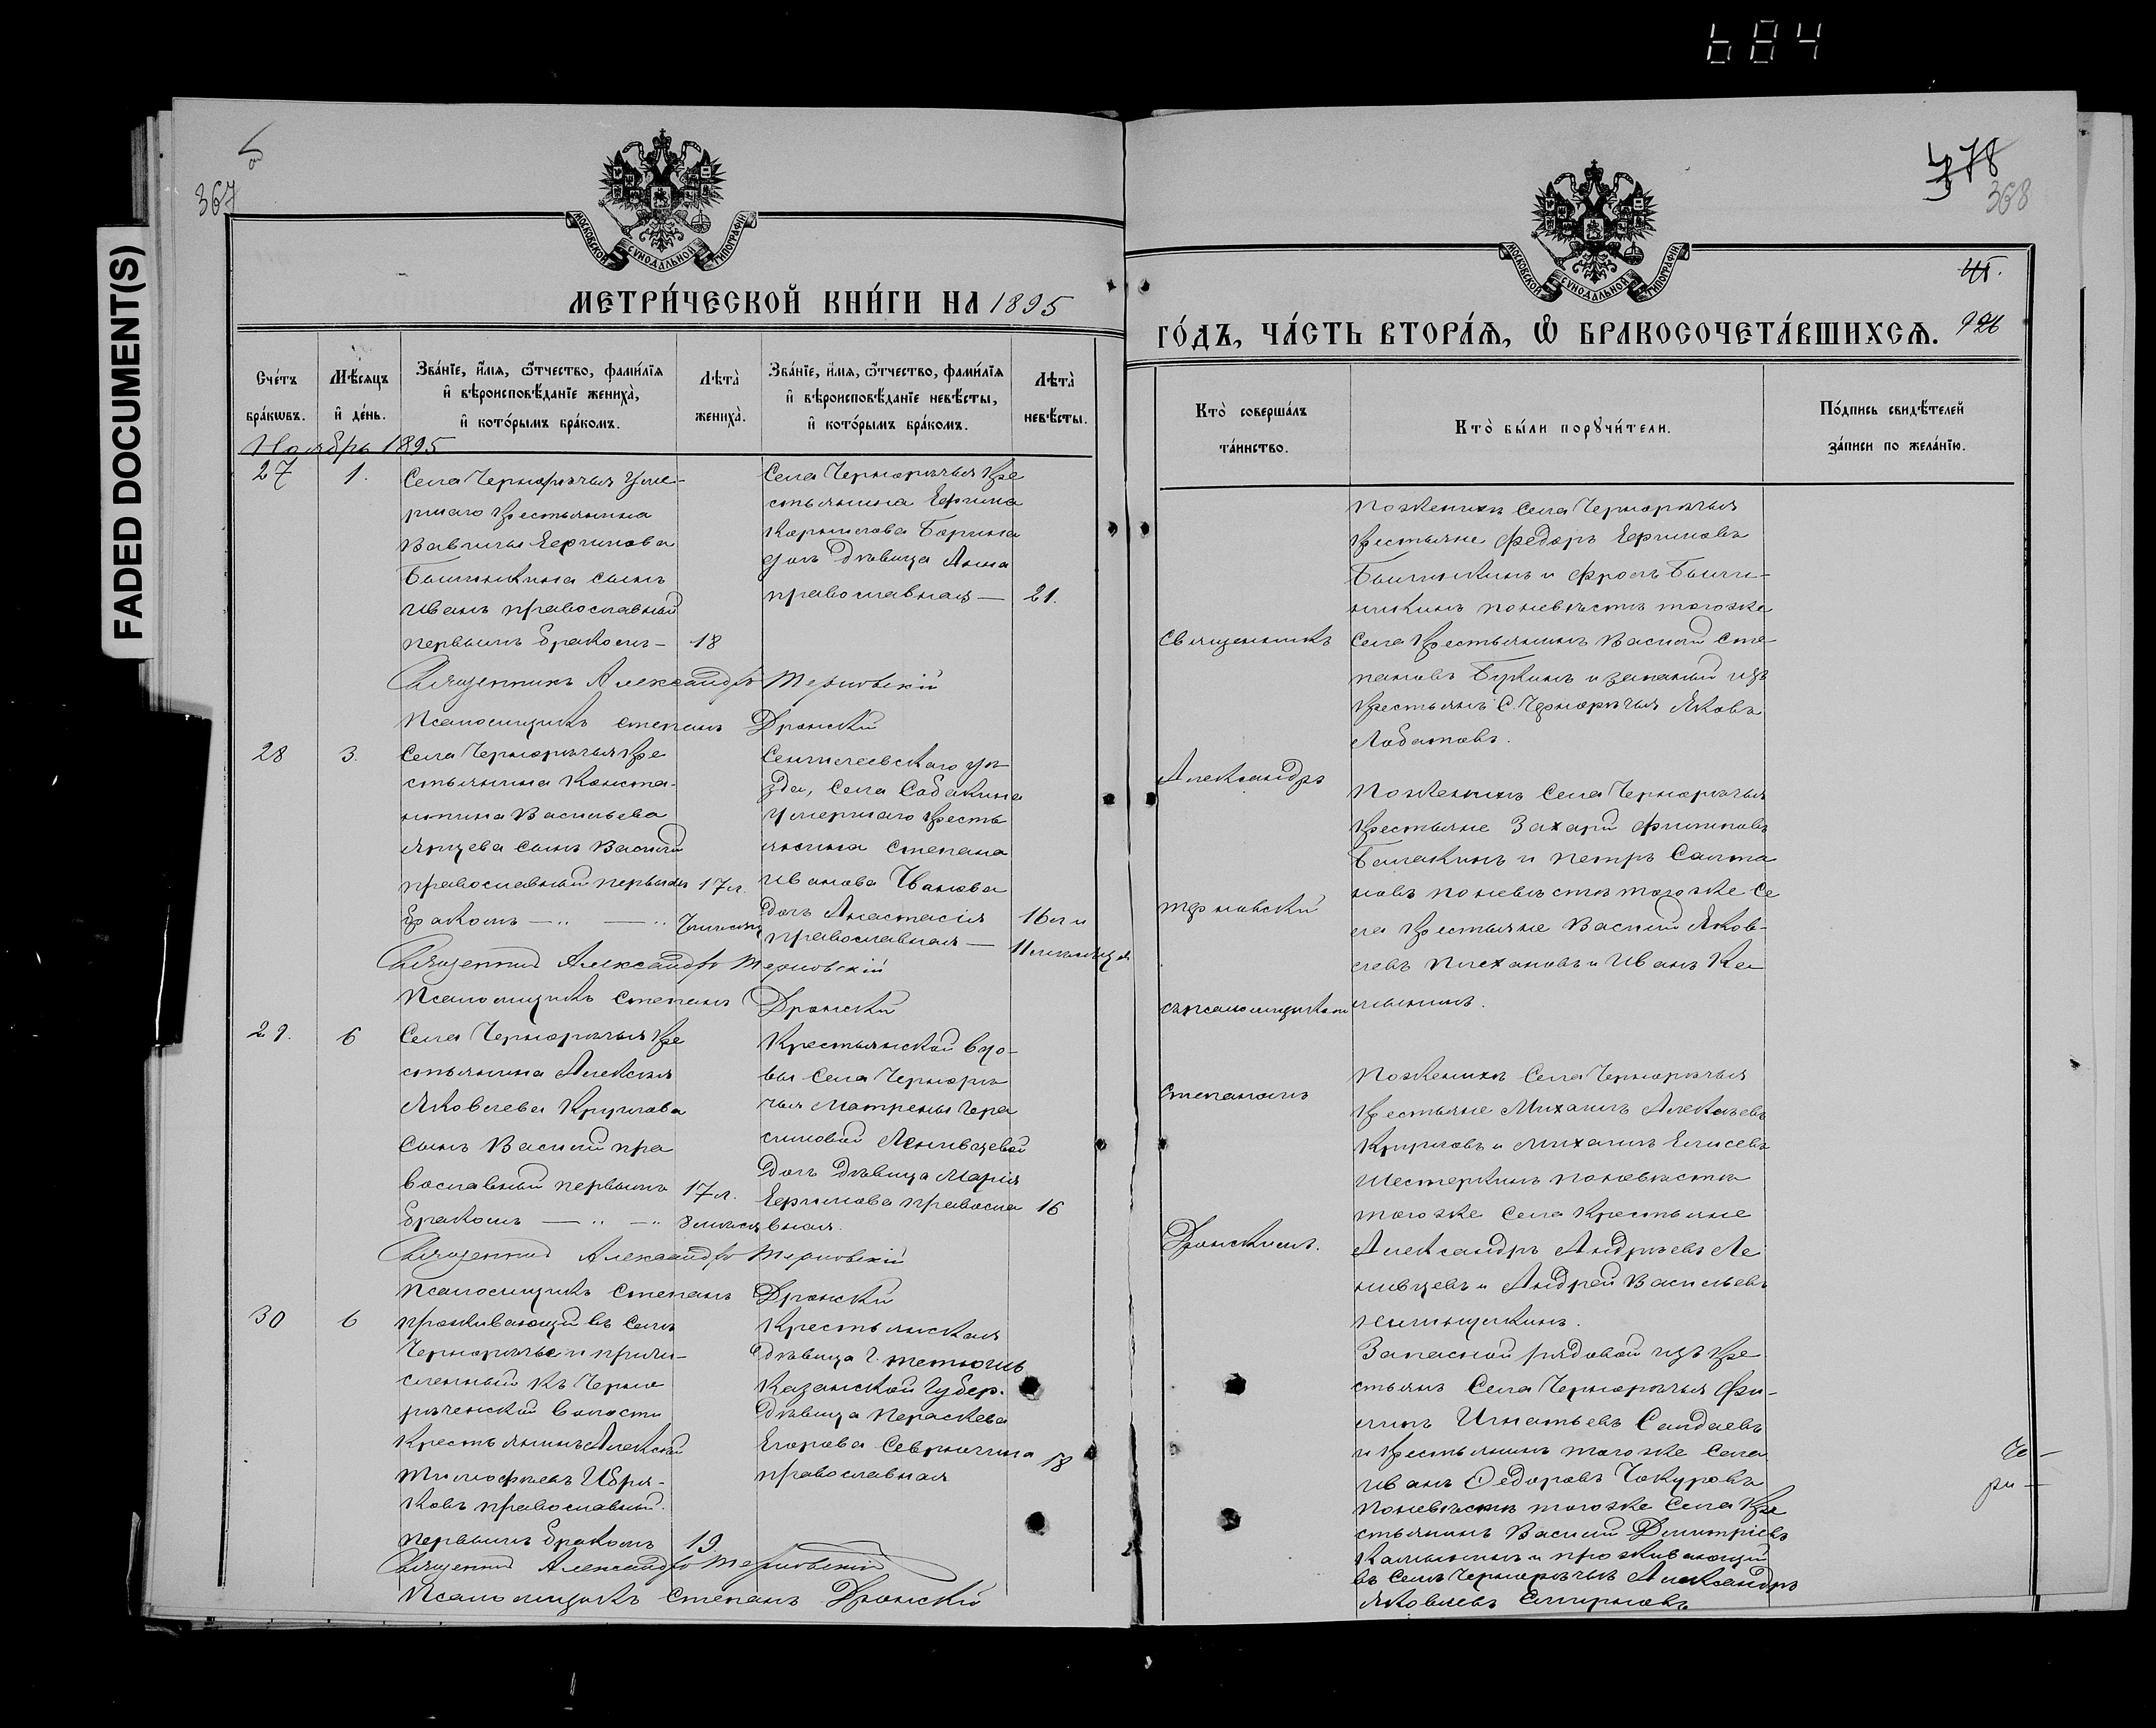 684
FADED DOCUMENT(S)
367
МОСКОВСКОЙ СѴНОДАЛЬНОЙ ТИПОГРАФІИ
МЕТРИ́ЧЕСКОЙ КНИ́ГИ НА 1895
Сче́тъ бра́кѡвъ.
Мѣ́сяцъ и҆ де́нь.
Зва́нїе, и҆́мѧ, ѻ҆́тчество, фами́лїѧ
и҆ вѣроисповѣ́данїе жениха̀,
и҆ кото́рымъ бра́комъ.
Лѣта̀ жениха̀.
Зва́нїе, и҆́мѧ, ѻ҆́тчество, фами́лїѧ
и҆ вѣроисповѣ́данїе невѣ́сты,
и҆ кото́рымъ бра́комъ.
Лѣта̀ невѣ́сты.
Ноябрь 1895
27
1.
Села Чернорѣчья уме-
ршаго крестьянина
Вавилы Ефимова
сынъ
Иванъ православный
первымъ бракомъ —
18
Села Чернорѣчья кре
стьянина Ефима
Корнилова
дочь дѣвица Анна
православная —
21.
Священникъ Александръ Терновскій
Псаломщикъ Степанъ Дронскій
28
3.
Села Чернорѣчья кре
стьянина Конста-
нтина Васильева
сынъ Василій
православный первымъ
бракомъ — " — "
17 л.
Сенгилеевскаго уѣ
зда, Села Собакина
умершаго кресть
янина Степана
Иванова
дочь Анастасія
православная —
16 л и
11 мѣсяцевъ
Священникъ Александръ Терновскій
Псаломщикъ Степанъ Дронскій
29.
6
Села Чернорѣчья кре
стьянина Алексѣя
Яковлева Круглова
сынъ Василій пра
вославный первымъ
бракомъ — " — "
17 л.
8 мѣсяц
Крестьянской вдо-
вы села Чернорѣ
чья Матрены Гера
симовой Ленивцевой
дочь дѣвица Марія
Ефимова правосла
вная.
16
Священникъ Александръ Терновскій
Псаломщикъ Степанъ Дронскій
30
6
Проживающій въ селѣ
Чернорѣчье и причи-
сленный къ Черно
рѣченской волости
Крестьянинъ Алексѣй
Тимофѣевъ
православный
первымъ бракомъ
19
Крестьянская
дѣвица г. Тетюшъ
Казанской Губер.
дѣвица Параскева
Егорова
православная
18
Священникъ Александръ Терновскій
Псаломщикъ Степанъ Дронскій
378
368
МОСКОВСКОЙ СѴНОДАЛЬНОЙ ТИПОГРАФІИ
ГО́ДЪ, ЧА́СТЬ ВТОРА́Ѧ, Ѽ БРАКОСОЧЕТА́ВШИХСѦ.
Кто̀ соверша́лъ
та́инство.
Кто̀ бы́ли порꙋчи́тели.
По́дпись свидѣ́телей
за́писи по жела́нїю.
Священникъ
Александръ
Терновскій
съ псаломщикомъ
Степаномъ
Дронскимъ.
По женихѣ Села Чернорѣчья
крестьяне Федоръ Ефимовъ
и Фролъ
по невѣстѣ того же
села крестьянинъ Василій Сте-
пановъ и запасный изъ
крестьянъ С. Чернорѣчья Яковъ
Лобатовъ.
По женихѣ Села Чернорѣчья
крестьяне Захарій Филиповъ
и Петръ
по невѣстѣ того же се
ла крестьяне Василій Яков-
левъ Плехановъ и Иванъ
По женихѣ Села Чернорѣчья
крестьяне Михаилъ Алексѣевъ
Кругловъ и Михаилъ Елисеевъ
Шестеркинъ по невѣстѣ
того же села крестьяне
Александръ Андреевъ Ле
нивцевъ и Андрей Васильевъ
Запасной рядовой изъ кре
стьянъ Села Чернорѣчья Фи-
липъ Игнатьевъ Сандаевъ
и крестьянинъ того же села
Иванъ Ѳедоровъ Чокуровъ
по невѣстѣ того же села кре
стьянинъ Василій Димитріевъ
и проживающій
въ селѣ Чернорѣчьѣ Александръ
Яковлевъ Смирновъ